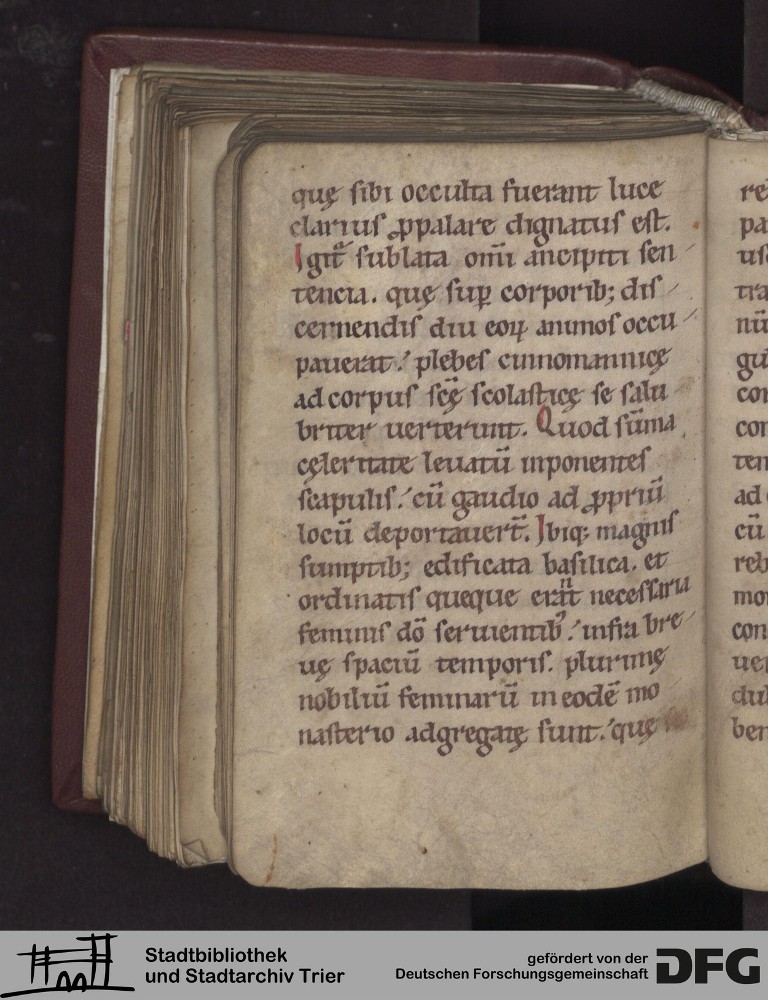 quę sibi occulta fuerant luce
clarius ꝓpalare dignatus est.
Igit᷑ sublata om̅i ancipiti sen
tencia. quę sup̲ corporib; dis
cernendis diu eoꝝ animos occu
pauerat. plebes cinnomannicę
ad corpus scę̅ scolasticę se salu
briter uerterunt. Quod sūma
cęleritate leuatū inponentes
scapulis. cū gaudio ad ꝓpriū
locū deportauert̅. Ibiq; magnis
sumptib; edificata basilica. et
ordinatis queque erānt necessaria
feminis dō seruientibꝰ. infra bre
uę spaciū temporis. plurimę
nobiliū feminarū in eodē mo
nasterio adgregatę sunt. quę
re
pa
us
tra
nū
gu
cor
con
ten
ad
cū
reb
mo
con
uer
dub
ben
Stadtbibliothek
und Stadtarchiv Trier
gefördert von der
Deutschen Forschungsgemeinschaft
DFG